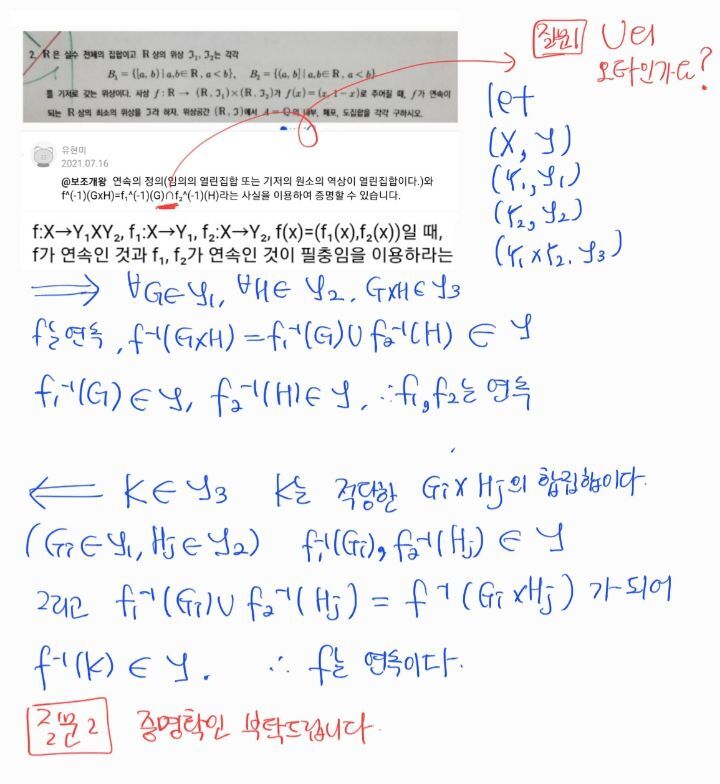 2. R은 실수 전체의 집합이고 R 상의 위상 ℑ₁, ℑ₂는 각각
B₁ = {[a, b) | a,b∈R, a<b}, B₂ = {(a, b] | a,b∈R, a<b}
를 기저로 갖는 위상이다. 사상 f : R → (R, ℑ₁)×(R, ℑ₂)가 f(x) = (x, 1-x)로 주어질 때, f가 연속이
되는 R 상의 최소의 위상을 ℑ라 하자. 위상공간 (R, ℑ)에서 A = Q의 내부, 폐포, 도집합을 각각 구하시오.
질문1 ∪의
오타인가요?
유현미
2021.07.16
@보조개왕 연속의 정의(임의의 열린집합 또는 기저의 원소의 역상이 열린집합이다.)와
f^(-1)(GxH)=f₁^(-1)(G)∩f₂^(-1)(H)라는 사실을 이용하여 증명할 수 있습니다.
let
(X, ℑ)
(Y₁, ℑ₁)
(Y₂, ℑ₂)
(Y₁×Y₂, ℑ₃)
f:X→Y₁XY₂, f₁:X→Y₁, f₂:X→Y₂, f(x)=(f₁(x),f₂(x))일 때,
f가 연속인 것과 f₁, f₂가 연속인 것이 필충임을 이용하라는
⟹ ∀G∈ℑ₁, ∀H∈ℑ₂, G×H∈ℑ₃
f는 연속, f⁻¹(G×H) = f₁⁻¹(G)∪f₂⁻¹(H) ∈ ℑ
f₁⁻¹(G)∈ℑ, f₂⁻¹(H)∈ℑ, ∴ f₁, f₂는 연속
⟸ K∈ℑ₃ K는 적당한 Gi×Hj의 합집합이다.
(Gi∈ℑ₁, Hj∈ℑ₂) f₁⁻¹(Gi), f₂⁻¹(Hj) ∈ ℑ
그리고 f₁⁻¹(Gi)∪f₂⁻¹(Hj) = f⁻¹(Gi×Hj) 가 되어
f⁻¹(K) ∈ ℑ. ∴ f는 연속이다.
질문2 증명확인 부탁드립니다.